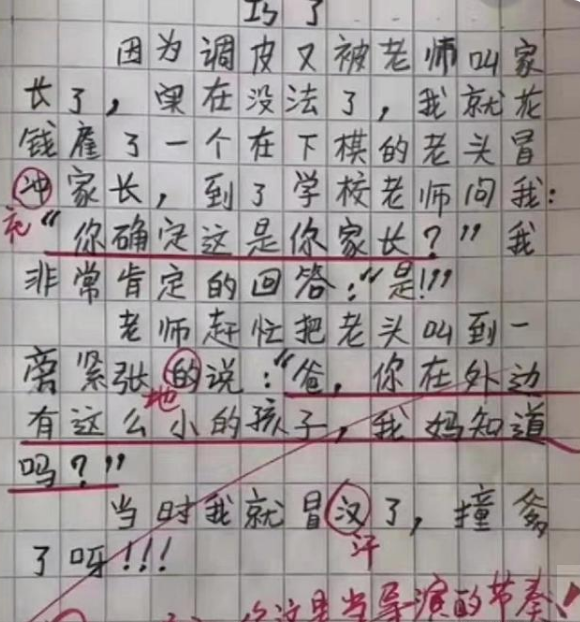 巧了
因为调皮又被老师叫家
长了，实在没法了，我就花
钱雇了一个在下棋的老头冒
冲家长，到了学校老师问我：
充
“你确定这是你家长？”我
非常肯定的回答：“是！！”
老师赶忙把老头叫到一
旁紧张的说：“爸，你在外边
地
有这么小的孩子，我妈知道
吗？”
当时我就冒汉了，撞爹
汗
了呀！！！
你这是当导演的节奏！